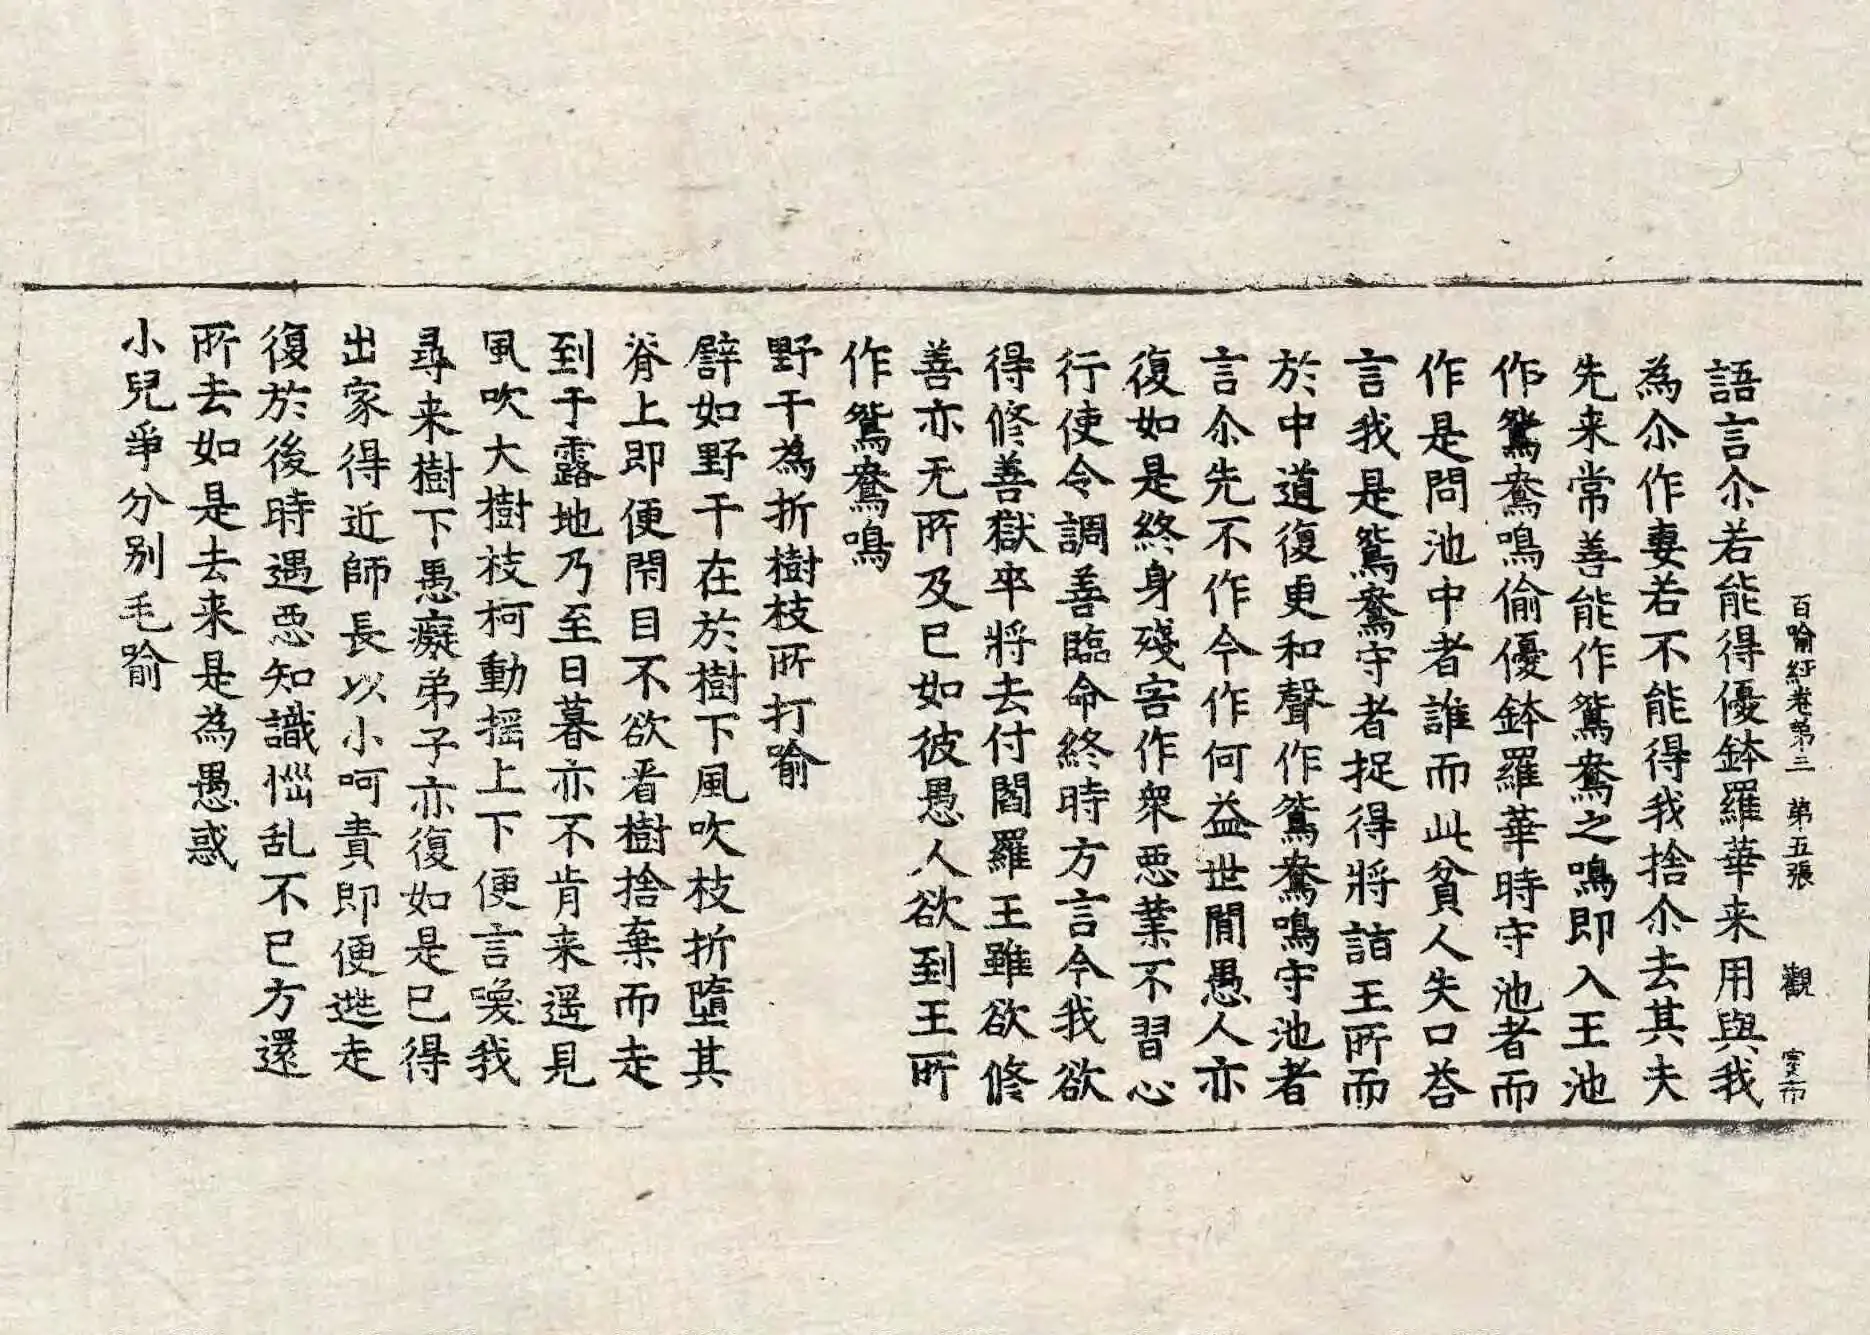 百喻經卷第三 第五張 觀 寔布
語言尒若能得優鉢羅華来用與我
為尒作妻若不能得我捨尒去其夫
先来常善能作鴛鴦之鳴即入王池
作鴛鴦鳴偷優鉢羅華時守池者而
作是問池中者誰而此貧人失口荅
言我是鴛鴦守者捉得將詣王所而
於中道復更和聲作鴛鴦鳴守池者
言尒先不作今作何益世間愚人亦
復如是終身殘害作衆惡業不習心
行使令調善臨命終時方言今我欲
得修善獄卒將去付閻羅王雖欲修
善亦无所及已如彼愚人欲到王所
作鴛鴦鳴
野干為折樹枝所打喻
譬如野干在於樹下風吹枝折墮其
脊上即便閇目不欲看樹捨棄而走
到于露地乃至日暮亦不肯来遥見
風吹大樹枝柯動揺上下便言喚我
尋来樹下愚癡弟子亦復如是已得
出家得近師長以小呵責即便逃走
復於後時遇惡知識惱乱不已方還
所去如是去来是為愚惑
小兒爭分别毛喻